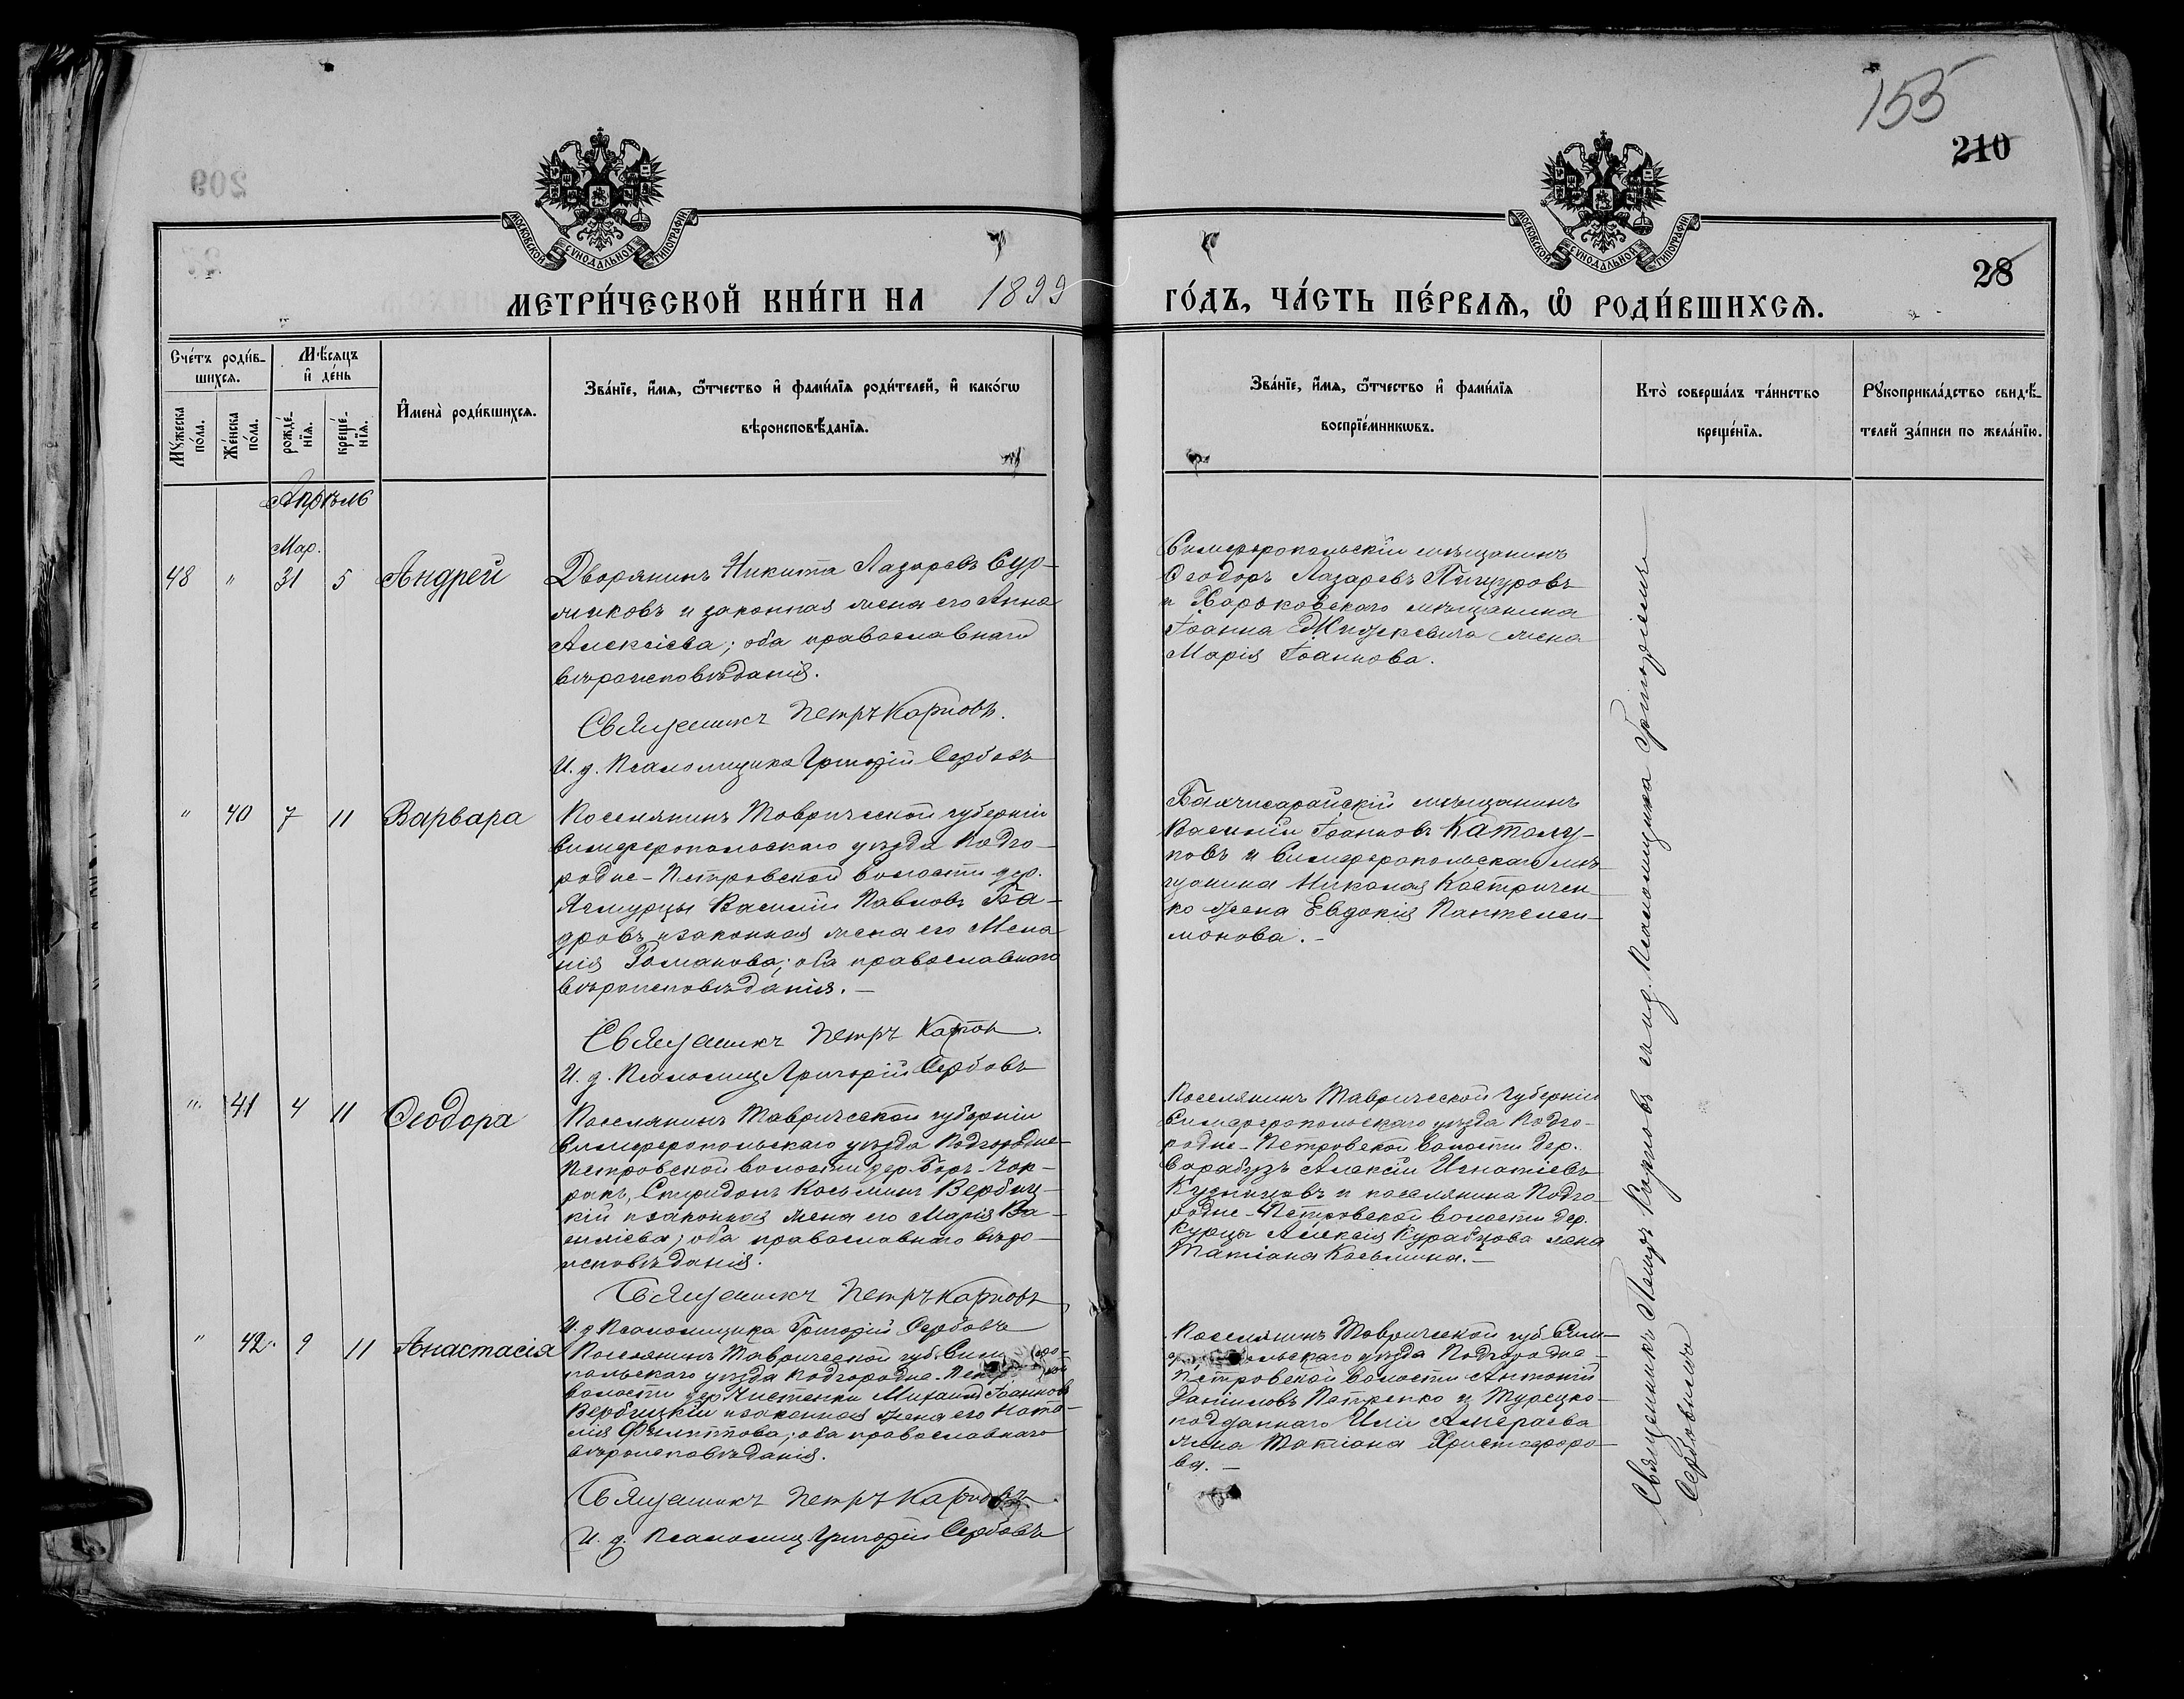 155
210
209
28
МОСКОВСКОЙ СУНОДАЛЬНОЙ ТИПОГРАФІИ
МОСКОВСКОЙ СУНОДАЛЬНОЙ ТИПОГРАФІИ
МЕТРИ́ЧЕСКОЙ КНИ́ГИ НА 1899
ГО́ДЪ, ЧА́СТЬ ПЕ́РВАѦ, Ѽ РОДИ́ВШИХСѦ.
Сче́тъ роди́в-
шихсѧ.
Мѣ́сѧцъ
и҆ де́нь
Мꙋ́жеска
по́ла.
Же́нска
по́ла.
рожде́-
нїѧ.
креще́-
нїѧ.
И҆мена̀ роди́вшихсѧ.
Зва́нїе, и҆́мѧ, ѻ҆́тчество и҆ фами́лїѧ роди́телей, и҆ како́гѡ
вѣроисповѣ́данїѧ.
Зва́нїе, и҆́мѧ, ѻ҆́тчество и҆ фами́лїѧ
воспрїе́мникѡвъ.
Кто̀ соверша́лъ та́инство
креще́нїѧ.
Рꙋкоприкла́дство свидѣ́-
телей за́писи по жела́нїю.
Апрѣль
Мар.
48 " 31 5 Андрей
Дворянинъ Никита Лазаревъ Сур-
миковъ и законная жена его Анна
Алексіева; оба православнаго
вѣроисповѣданія.
Священникъ Петръ Карповъ.
И. д. Псаломщика Григорій Сербовъ
Симферопольскій мѣщанинъ
Ѳеодоръ Лазаревъ Пищуровъ
и Харьковскаго мѣщанина
Іоанна жена
Марія Іоаннова.
" 40 7 11 Варвара
Поселянинъ Таврической губерніи
Симферопольскаго уѣзда Подго-
родне-Петровской волости дер.
Ягмурцы Василій Павловъ Ба-
дровъ и законная жена его Мела
нія Романова; оба православнаго
вѣроисповѣданія. —
Священникъ Петръ Карпов.
И. д. Псаломщ Григорій Сербовъ
Бахчисарайскій мѣщанинъ
Василій Іоанновъ Катому-
повъ и Симферопольскаго мѣ-
щанина Николая Костричен-
ко жена Евдокія Пантелеи-
монова. —
" 41 4 11 Ѳеодора
Поселянинъ Таврической губерніи
Симферопольскаго уѣзда Подгородне-
Петровской волости дер. Боръ-Чок-
ракъ, Спиридонъ Косьминъ Вербиц-
кій и законная жена его Марія Ва-
силіева; оба православнаго вѣро-
исповѣданія.
Священникъ Петръ Карповъ
И. д Псаломщика Григорій Сербовъ
Поселянинъ Таврической губерніи
Симферопольскаго уѣзда Подго-
родне-Петровской волости дер.
Сарабузъ Алексій Игнатіевъ
Кузнецовъ и поселянина Подго-
родне-Петровской волости дер.
Курцы Алексія Курабцова жена
Татіана Косьмина. —
" 42. 9 11 Анастасія
Поселянинъ Таврической губ. Сим
польскаго уѣзда Подгородне-Петр
волости дер. Чистенки Михаилъ Іоанновъ
Вербицкій и законная жена его Ната-
лія Филиппова; оба православнаго
вѣроисповѣданія.
Священникъ Петръ Карповъ.
И. д. Псаломщ Григорій Сербовъ
Поселянинъ Таврической губ. Сим-
польскаго уѣзда Подгородне-
Петровской волости Антоній
Даниловъ Петренко и Турецко-
подданнаго Иліи Амераева
жена Татіана Христофоро-
ва. —
Священникъ Петръ Карповъ съ и. д. Псаломщика Григоріемъ
Сербовымъ